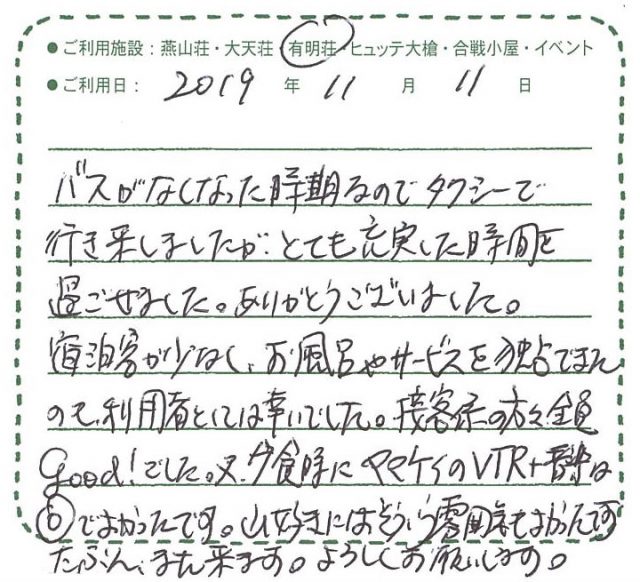 ● ご利用施設：燕山荘・大天荘・有明荘・ヒュッテ大槍・合戦小屋・イベント
● ご利用日： 2019 年 11 月 11 日
バスがなくなった時期なのでタクシーで
行き来しましたが、とても充実した時間を
過ごせました。ありがとうございました。
宿泊客が少なく、お風呂やサービスを独占できた
のも、利用者としては幸いでした。接客係の方々全員
good！でした。又、夕食時にヤマケイのVTR＋音楽は
でよかったです。山好きにはそういう雰囲気もよかんです
たぶん、また来ます。よろしくお願いします。